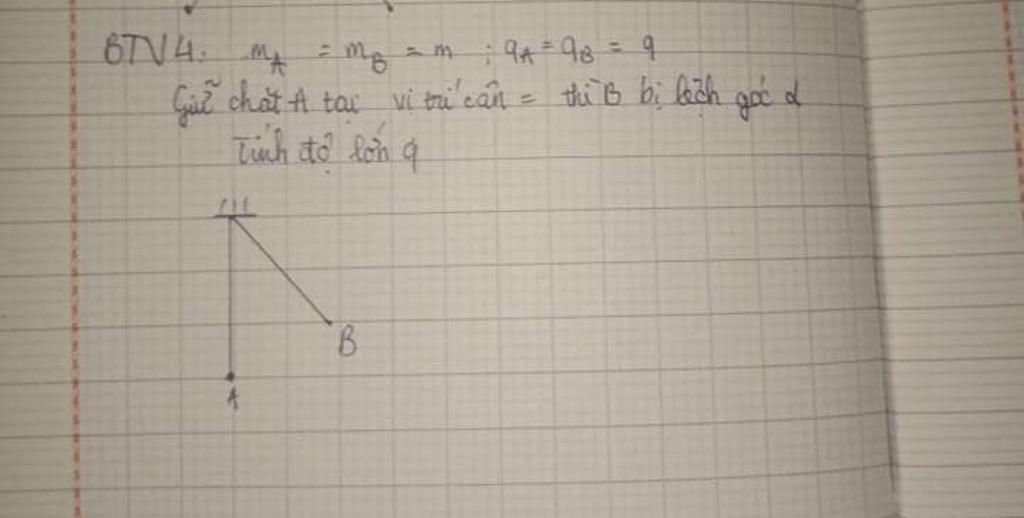 BTV4: m_A = m_B = m ; q_A = q_B = q
Giữ chặt A tại vị trí cân = thì B bị lệch góc α
Tính độ lớn q
B
A